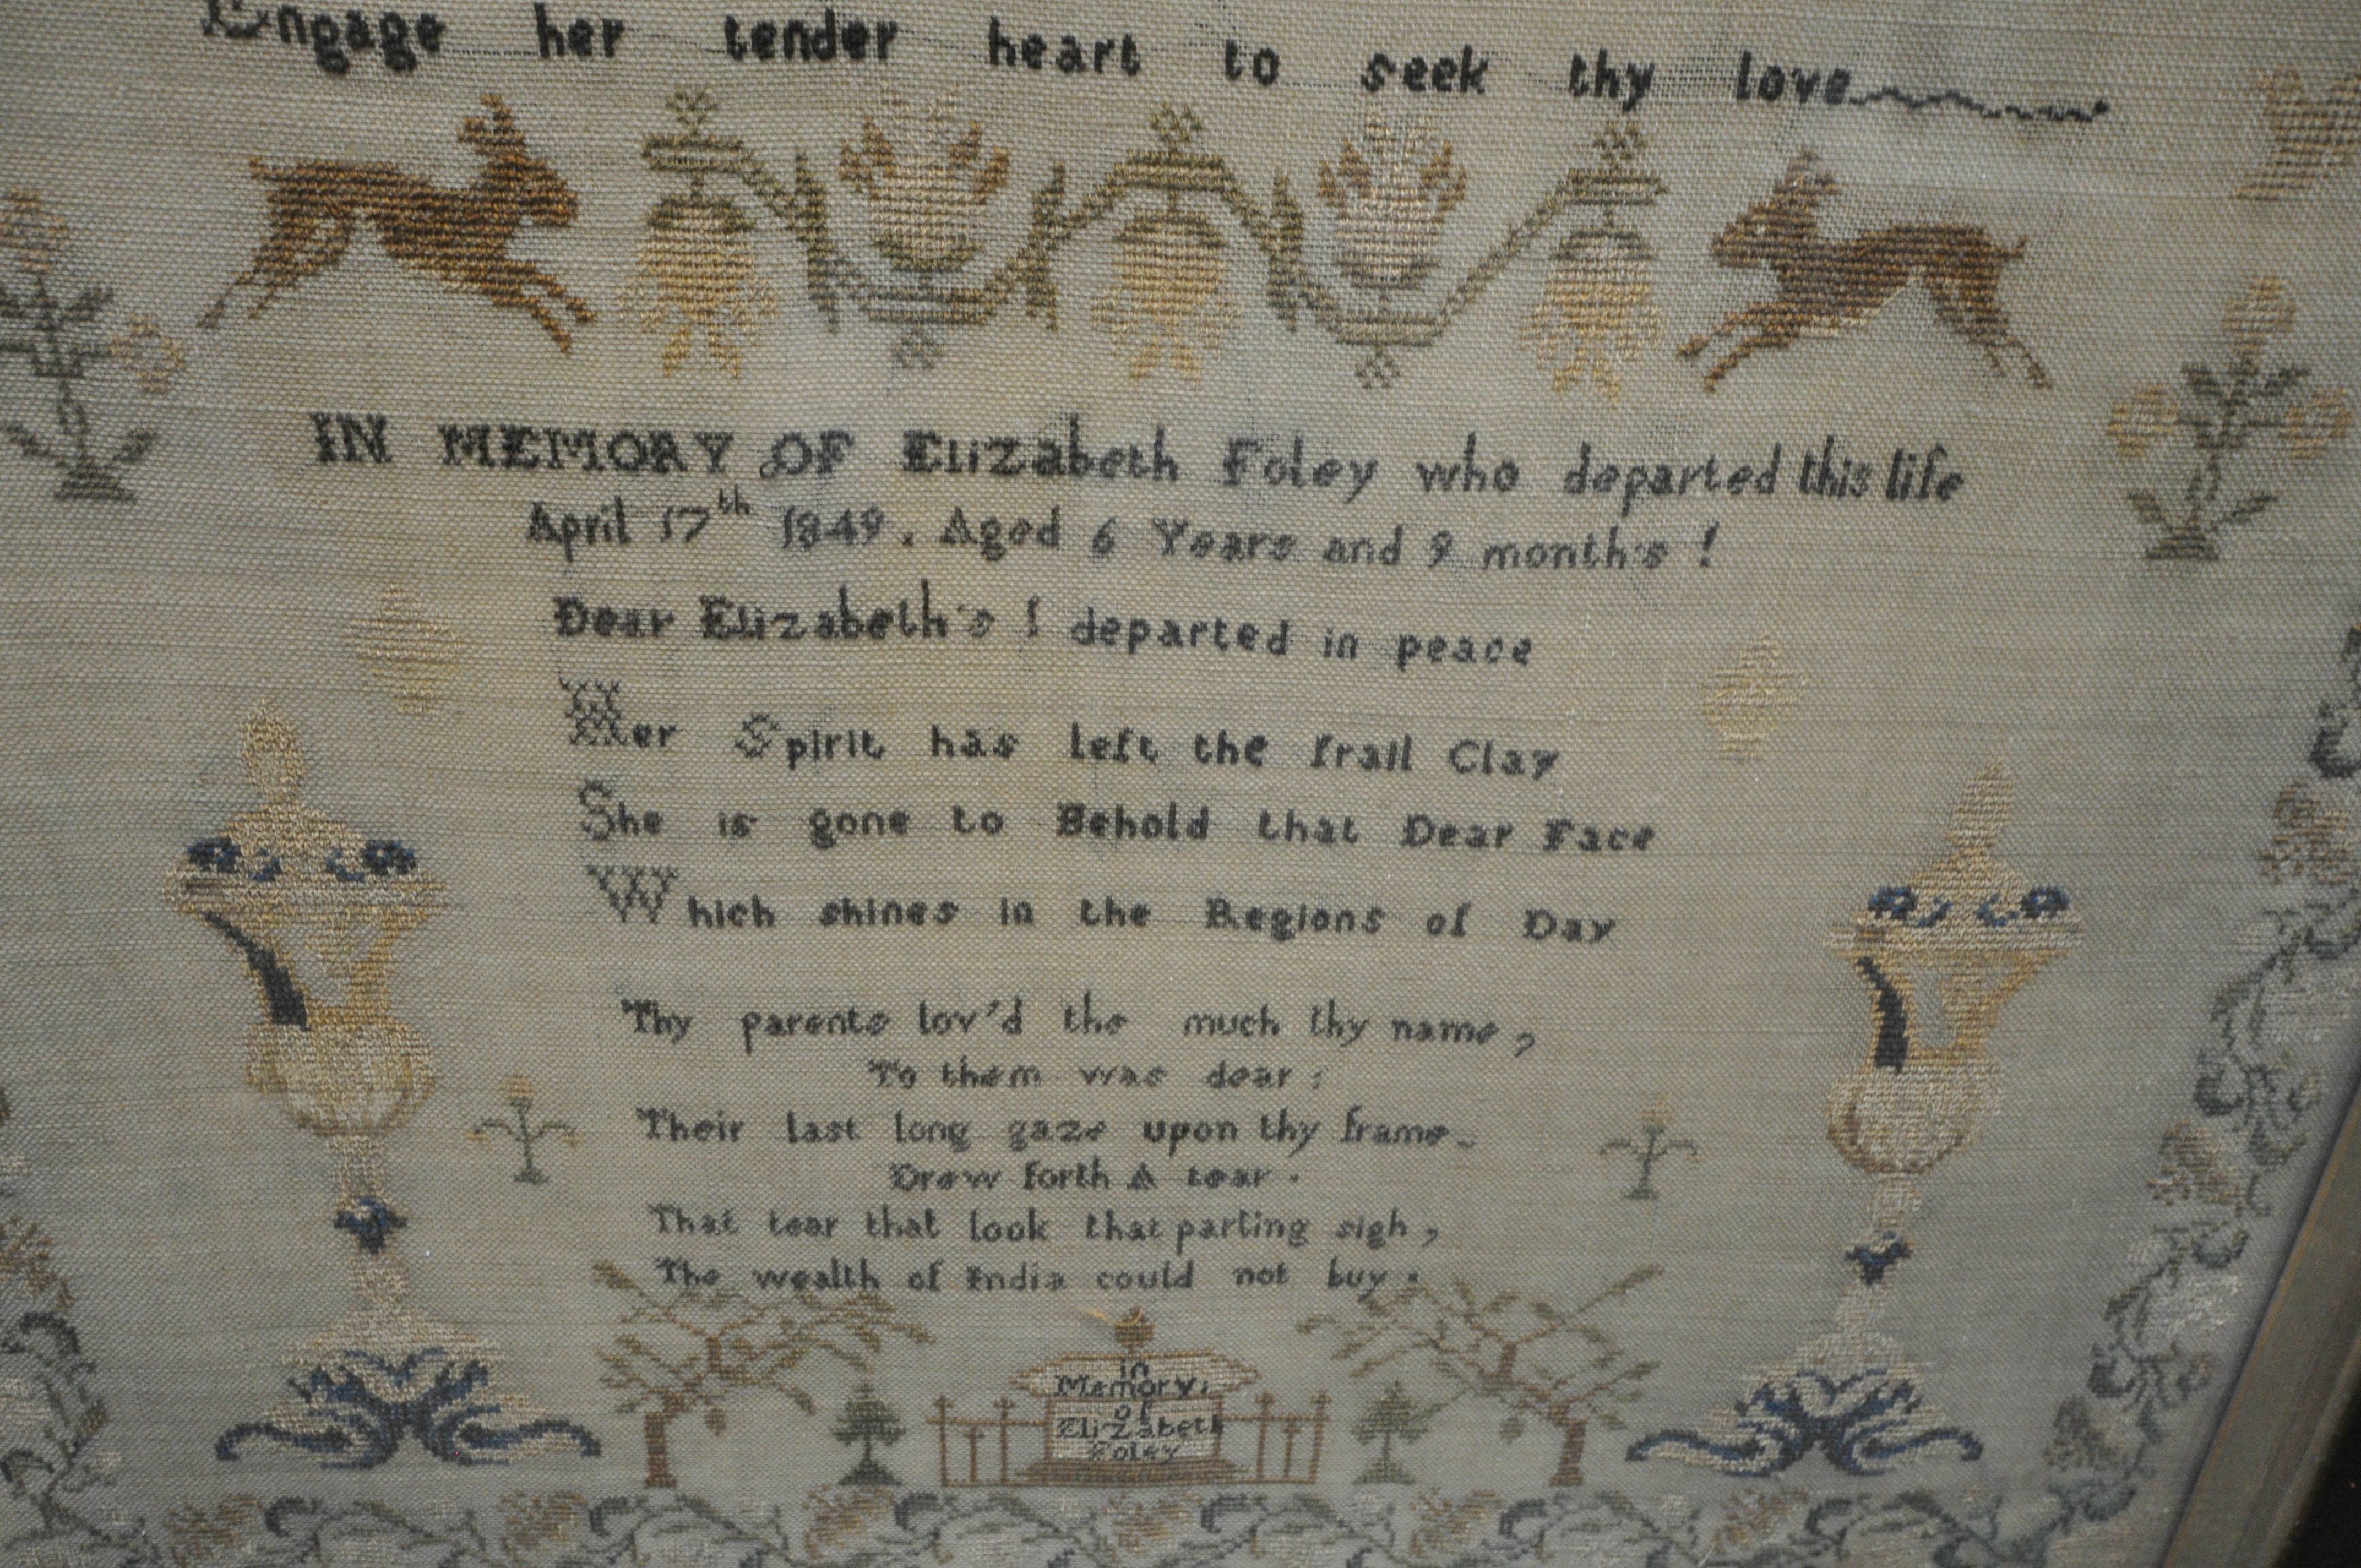 Engage her tender heart to seek thy love
IN MEMORY OF Elizabeth Foley who departed this life
April 17th 1849. Aged 6 Years and 9 month's !
Dear Elizabeth's ! departed in peace
Her Spirit has left the frail Clay
She is gone to Behold that Dear Face
Which shines in the Regions of Day
Thy parents lov'd the much thy name,
To them was dear:
Their last long gaze upon thy frame
Drew forth A tear.
That tear that look that parting sigh,
The wealth of India could not buy.
in
Memory,
of
Elizabeth
Foley